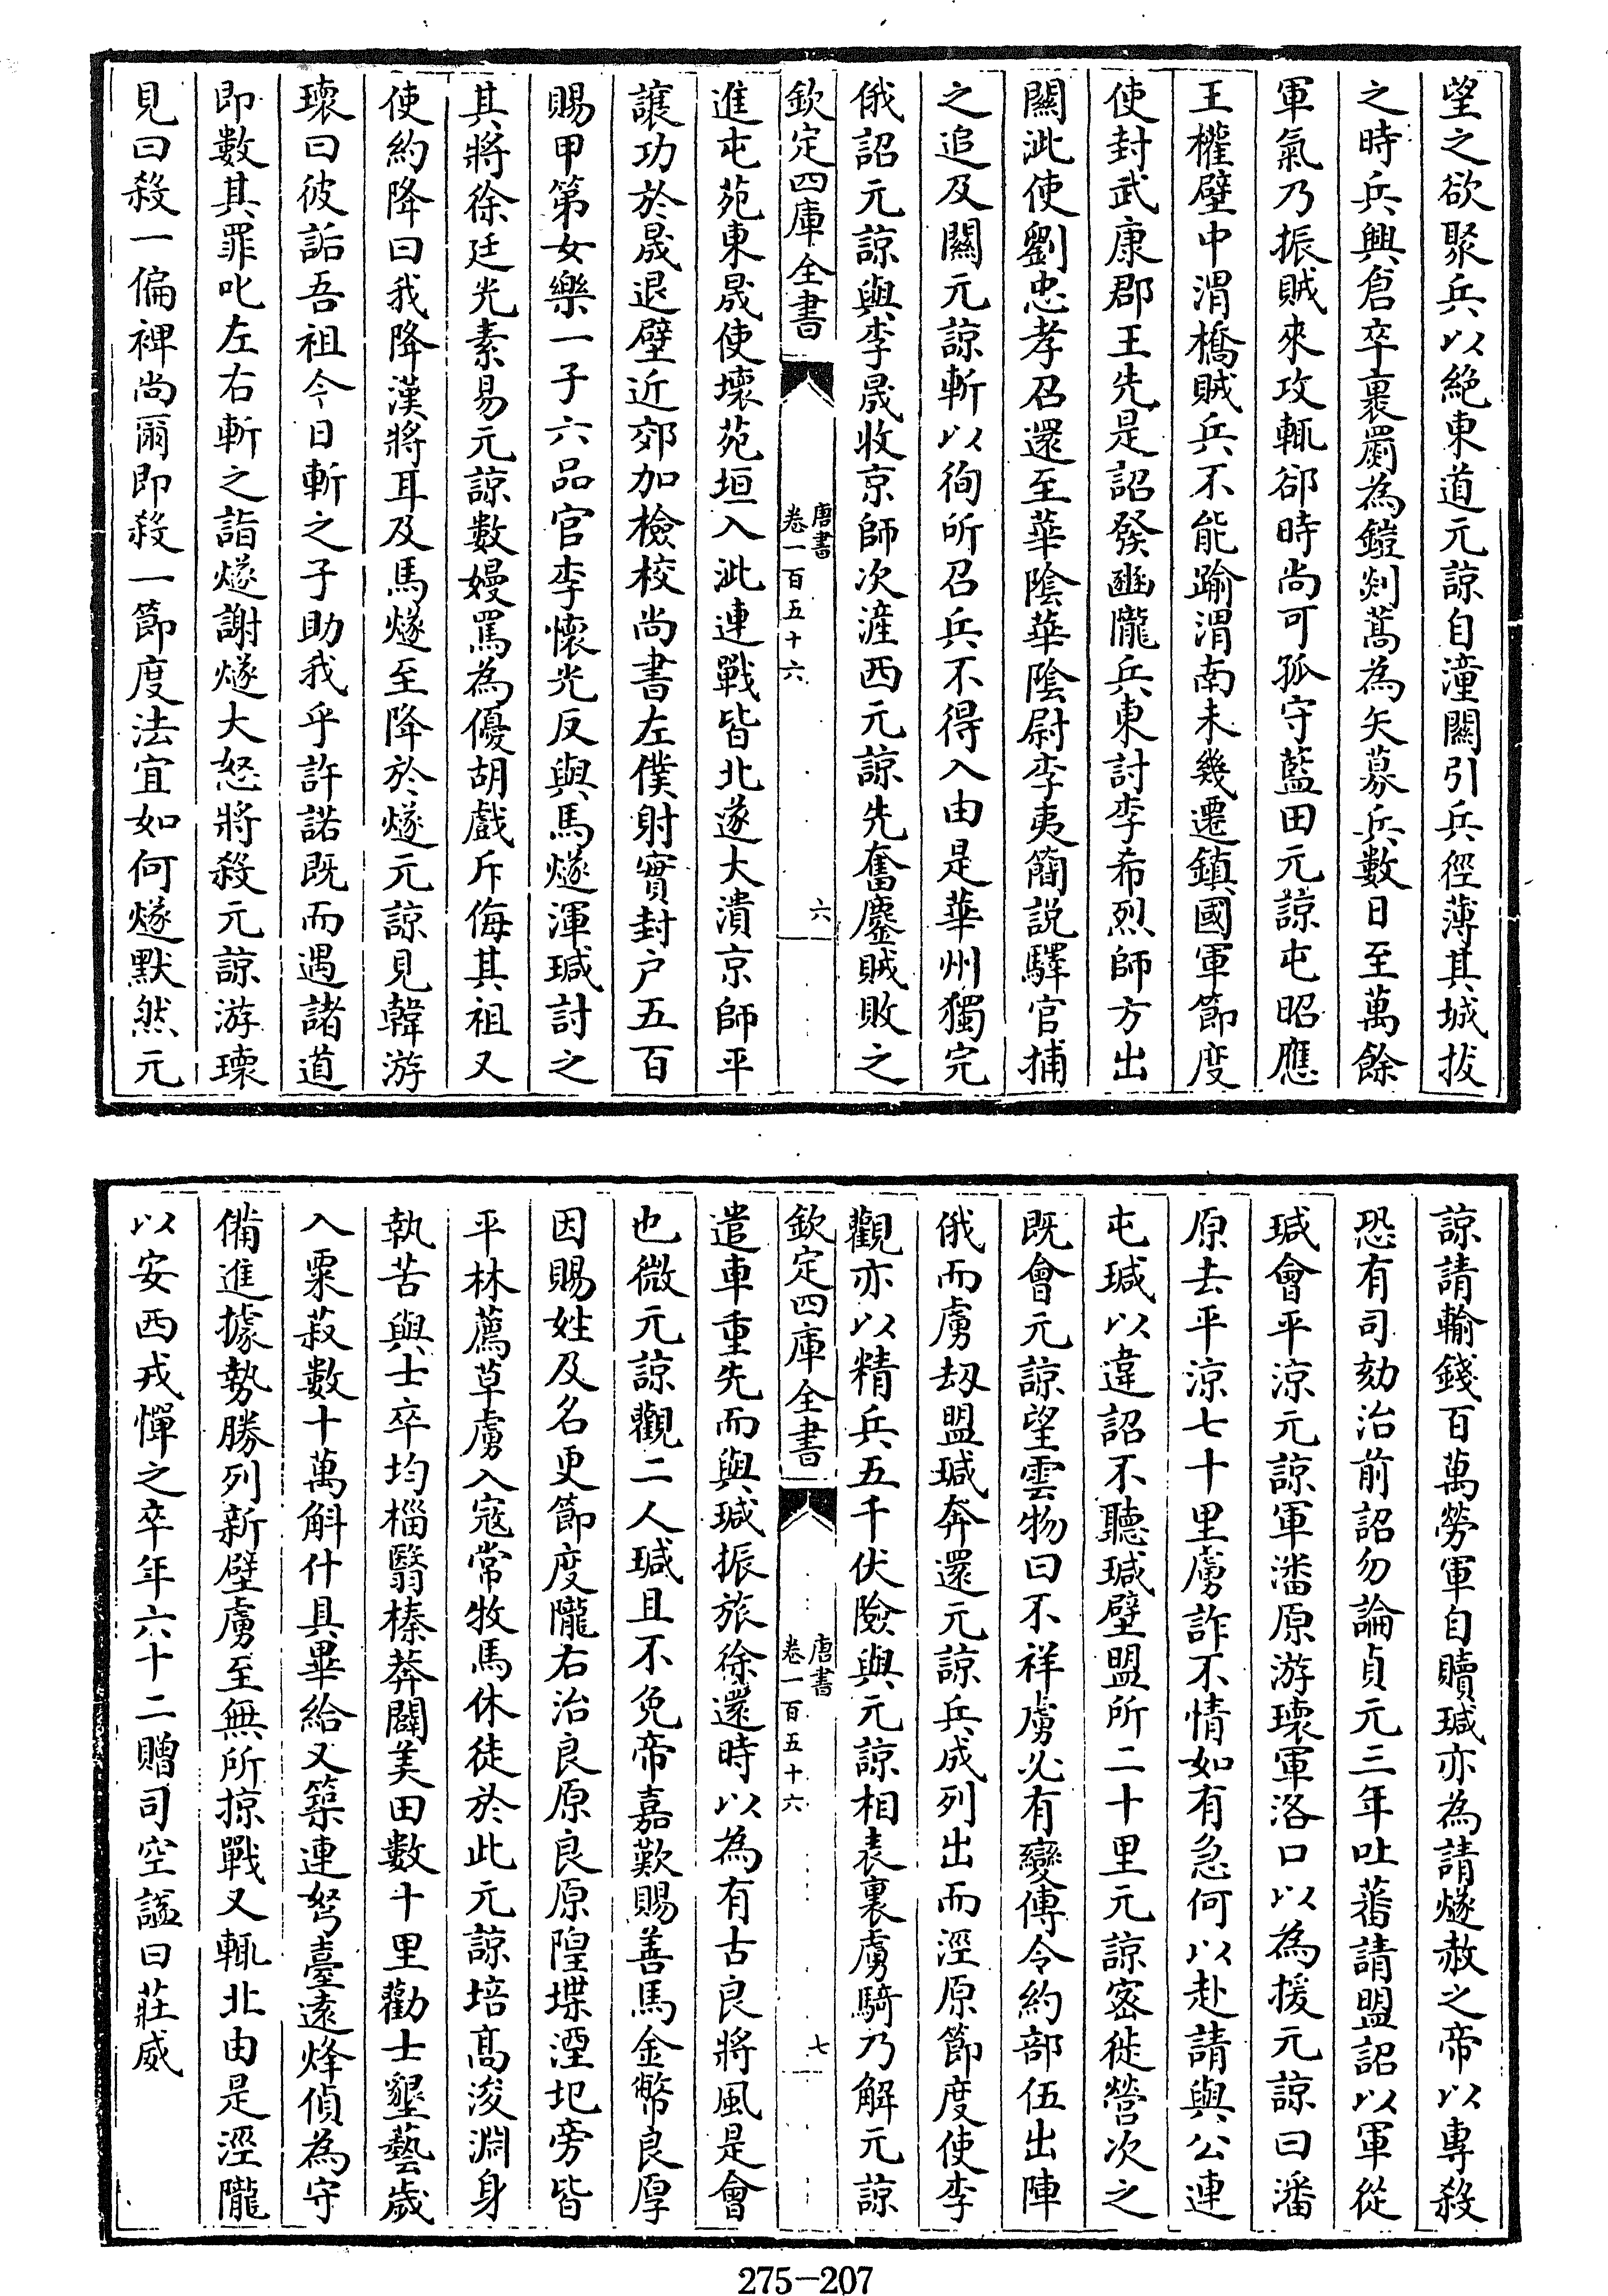 望之欲聚兵以絶東道元諒自潼關引兵徑薄其城拔
之時兵興倉卒裹罽為鎧剡蒿為矢募兵數日至萬餘
軍氣乃振賊來攻輒郤時尚可孤守藍田元諒屯昭應
王權壁中渭橋賊兵不能踰渭南未幾遷鎮國軍節度
使封武康郡王先是詔發豳隴兵東討李希烈師方出
關泚使劉忠孝召還至華陰華陰尉李夷簡説驛官捕
之追及關元諒斬以徇所召兵不得入由是華州獨完
俄詔元諒與李晟收京師次滻西元諒先奮鏖賊敗之
欽定四庫全書
唐書
卷一百五十六
六
進屯苑東晟使壞苑垣入泚連戰皆北遂大潰京師平
讓功於晟退壁近郊加檢校尚書左僕射實封户五百
賜甲第女樂一子六品官李懷光反與馬燧渾瑊討之
其將徐廷光素易元諒數嫚罵為優胡戲斥侮其祖又
使約降曰我降漢將耳及馬燧至降於燧元諒見韓游
瓌曰彼詬吾祖今日斬之子助我乎許諾既而遇諸道
即數其罪叱左右斬之詣燧謝燧大怒將殺元諒游瓌
見曰殺一偏裨尚爾即殺一節度法宜如何燧默然元
諒請輸錢百萬勞軍自贖瑊亦為請燧赦之帝以專殺
恐有司劾治前詔勿論貞元三年吐蕃請盟詔以軍從
瑊會平涼元諒軍潘原游瓌軍洛口以為援元諒曰潘
原去平涼七十里虜詐不情如有急何以赴請與公連
屯瑊以違詔不聽瑊壁盟所二十里元諒密徙營次之
既會元諒望雲物曰不祥虜必有變傳令約部伍出陣
俄而虜刼盟瑊奔還元諒兵成列出而涇原節度使李
觀亦以精兵五千伏險與元諒相表裏虜騎乃解元諒
欽定四庫全書
唐書
卷一百五十六
七
遣車重先而與瑊振旅徐還時以為有古良將風是會
也微元諒觀二人瑊且不免帝嘉歎賜善馬金幣良厚
因賜姓及名更節度隴右治良原良原隍堞湮圮旁皆
平林薦草虜入寇常牧馬休徒於此元諒培髙浚淵身
執苦與士卒均椔翳榛莽闢美田數十里勸士墾藝歲
入粟菽數十萬斛什具畢給又築連弩臺遠烽偵為守
備進據勢勝列新壁虜至無所掠戰又輒北由是涇隴
以安西戎憚之卒年六十二贈司空諡曰莊威
275-207